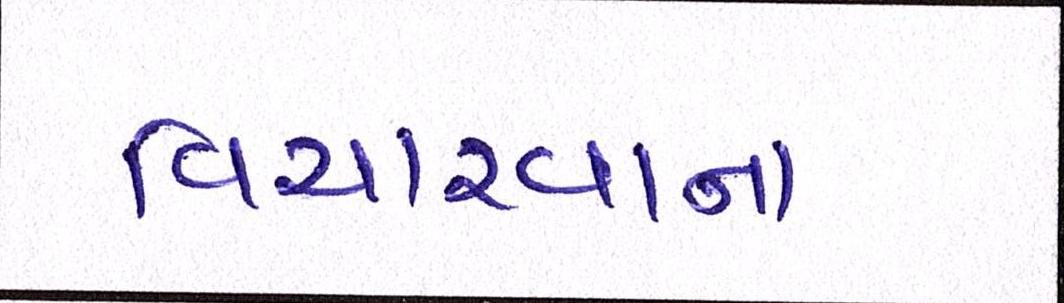 વિચારવાના